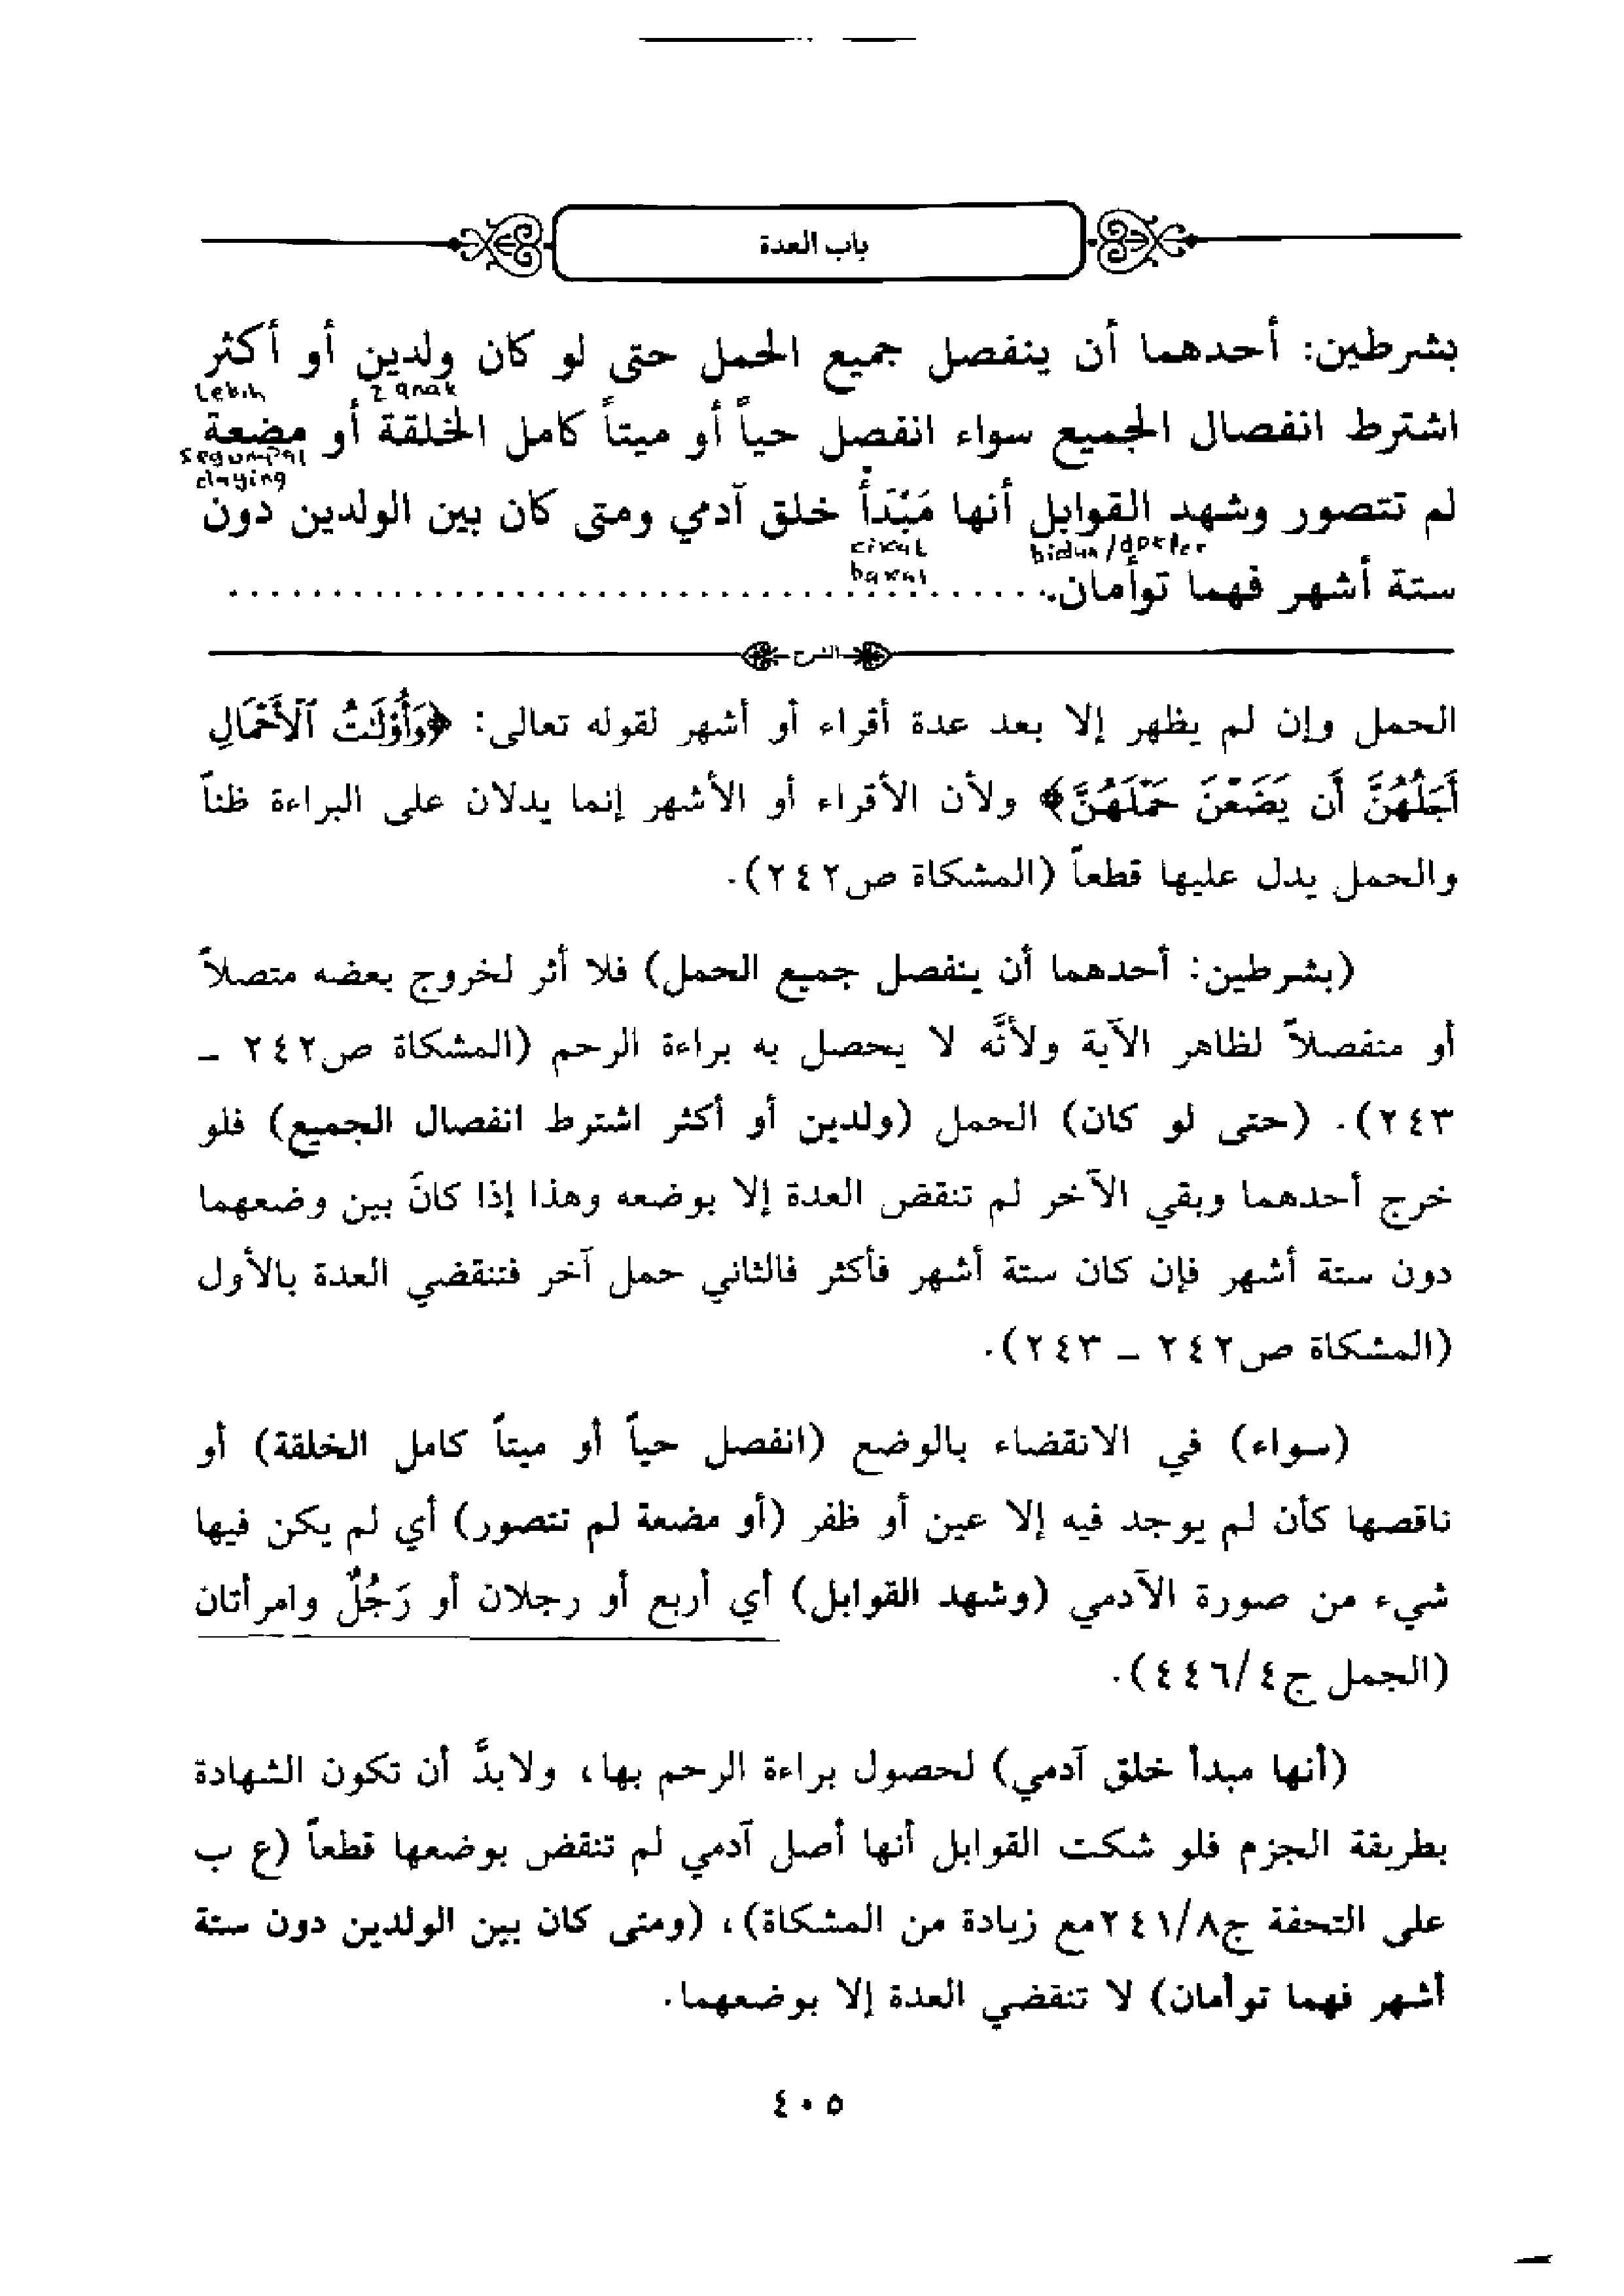 باب العدة
بشرطين: أحدهما أن ينفصل جميع الحمل حتى لو كان ولدين أو أكثر
Lebih 2 anak
اشترط انفصال الجميع سواء انفصل حياً أو ميتاً كامل الخلقة أو مضعة
segumpal
daging
لم تتصور وشهد القوابل أنها مَبْدَأُ خلق آدمي ومتى كان بين الولدين دون
cikal bidun/dokter
bakal
ستة أشهر فهما توأمان.......................................
الشرح
الحمل وإن لم يظهر إلا بعد عدة أقراء أو أشهر لقوله تعالى: ﴿وَأُوْلَٰتُ ٱلْأَحْمَالِ
أَجَلُهُنَّ أَن يَضَعْنَ حَمْلَهُنَّ﴾ ولأن الأقراء أو الأشهر إنما يدلان على البراءة ظناً
والحمل يدل عليها قطعاً (المشكاة ص٢٤٢).
(بشرطين: أحدهما أن ينفصل جميع الحمل) فلا أثر لخروج بعضه متصلاً
أو منفصلاً لظاهر الآية ولأنَّه لا يحصل به براءة الرحم (المشكاة ص٢٤٢ -
٢٤٣). (حتى لو كان) الحمل (ولدين أو أكثر اشترط انفصال الجميع) فلو
خرج أحدهما وبقي الآخر لم تنقض العدة إلا بوضعه وهذا إذا كانَ بين وضعهما
دون ستة أشهر فإن كان ستة أشهر فأكثر فالثاني حمل آخر فتنقضي العدة بالأول
(المشكاة ص٢٤٢ - ٢٤٣).
(سواء) في الانقضاء بالوضع (انفصل حياً أو ميتاً كامل الخلقة) أو
ناقصها كأن لم يوجد فيه إلا عين أو ظفر (أو مضعة لم تتصور) أي لم يكن فيها
شيء من صورة الآدمي (وشهد القوابل) أي أربع أو رجلان أو رَجُلٌ وامرأتان
(الجمل ج٤/٤٤٦).
(أنها مبدأ خلق آدمي) لحصول براءة الرحم بها، ولابدَّ أن تكون الشهادة
بطريقة الجزم فلو شكت القوابل أنها أصل آدمي لم تنقض بوضعها قطعاً (ع ب
على التحفة ج٢٤١/٨مع زيادة من المشكاة)، (ومتى كان بين الولدين دون ستة
أشهر فهما توأمان) لا تنقضي العدة إلا بوضعهما.
٤٠٥